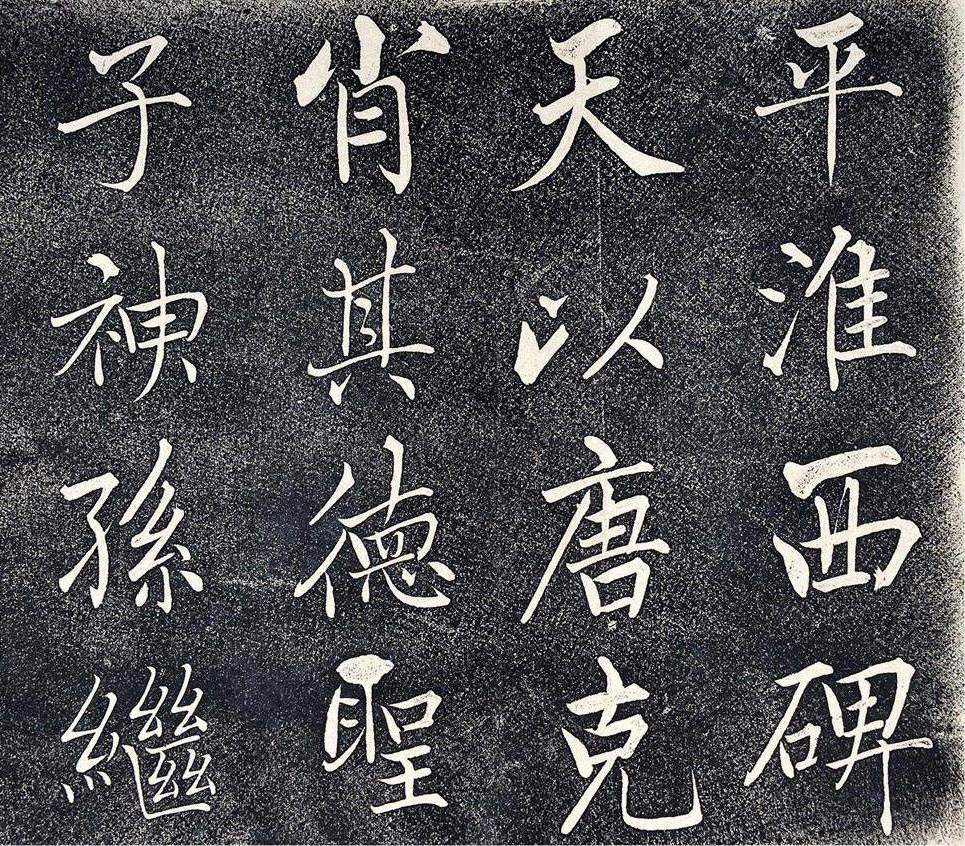 平淮西碑
天以唐克
肖其德聖
子神孫繼